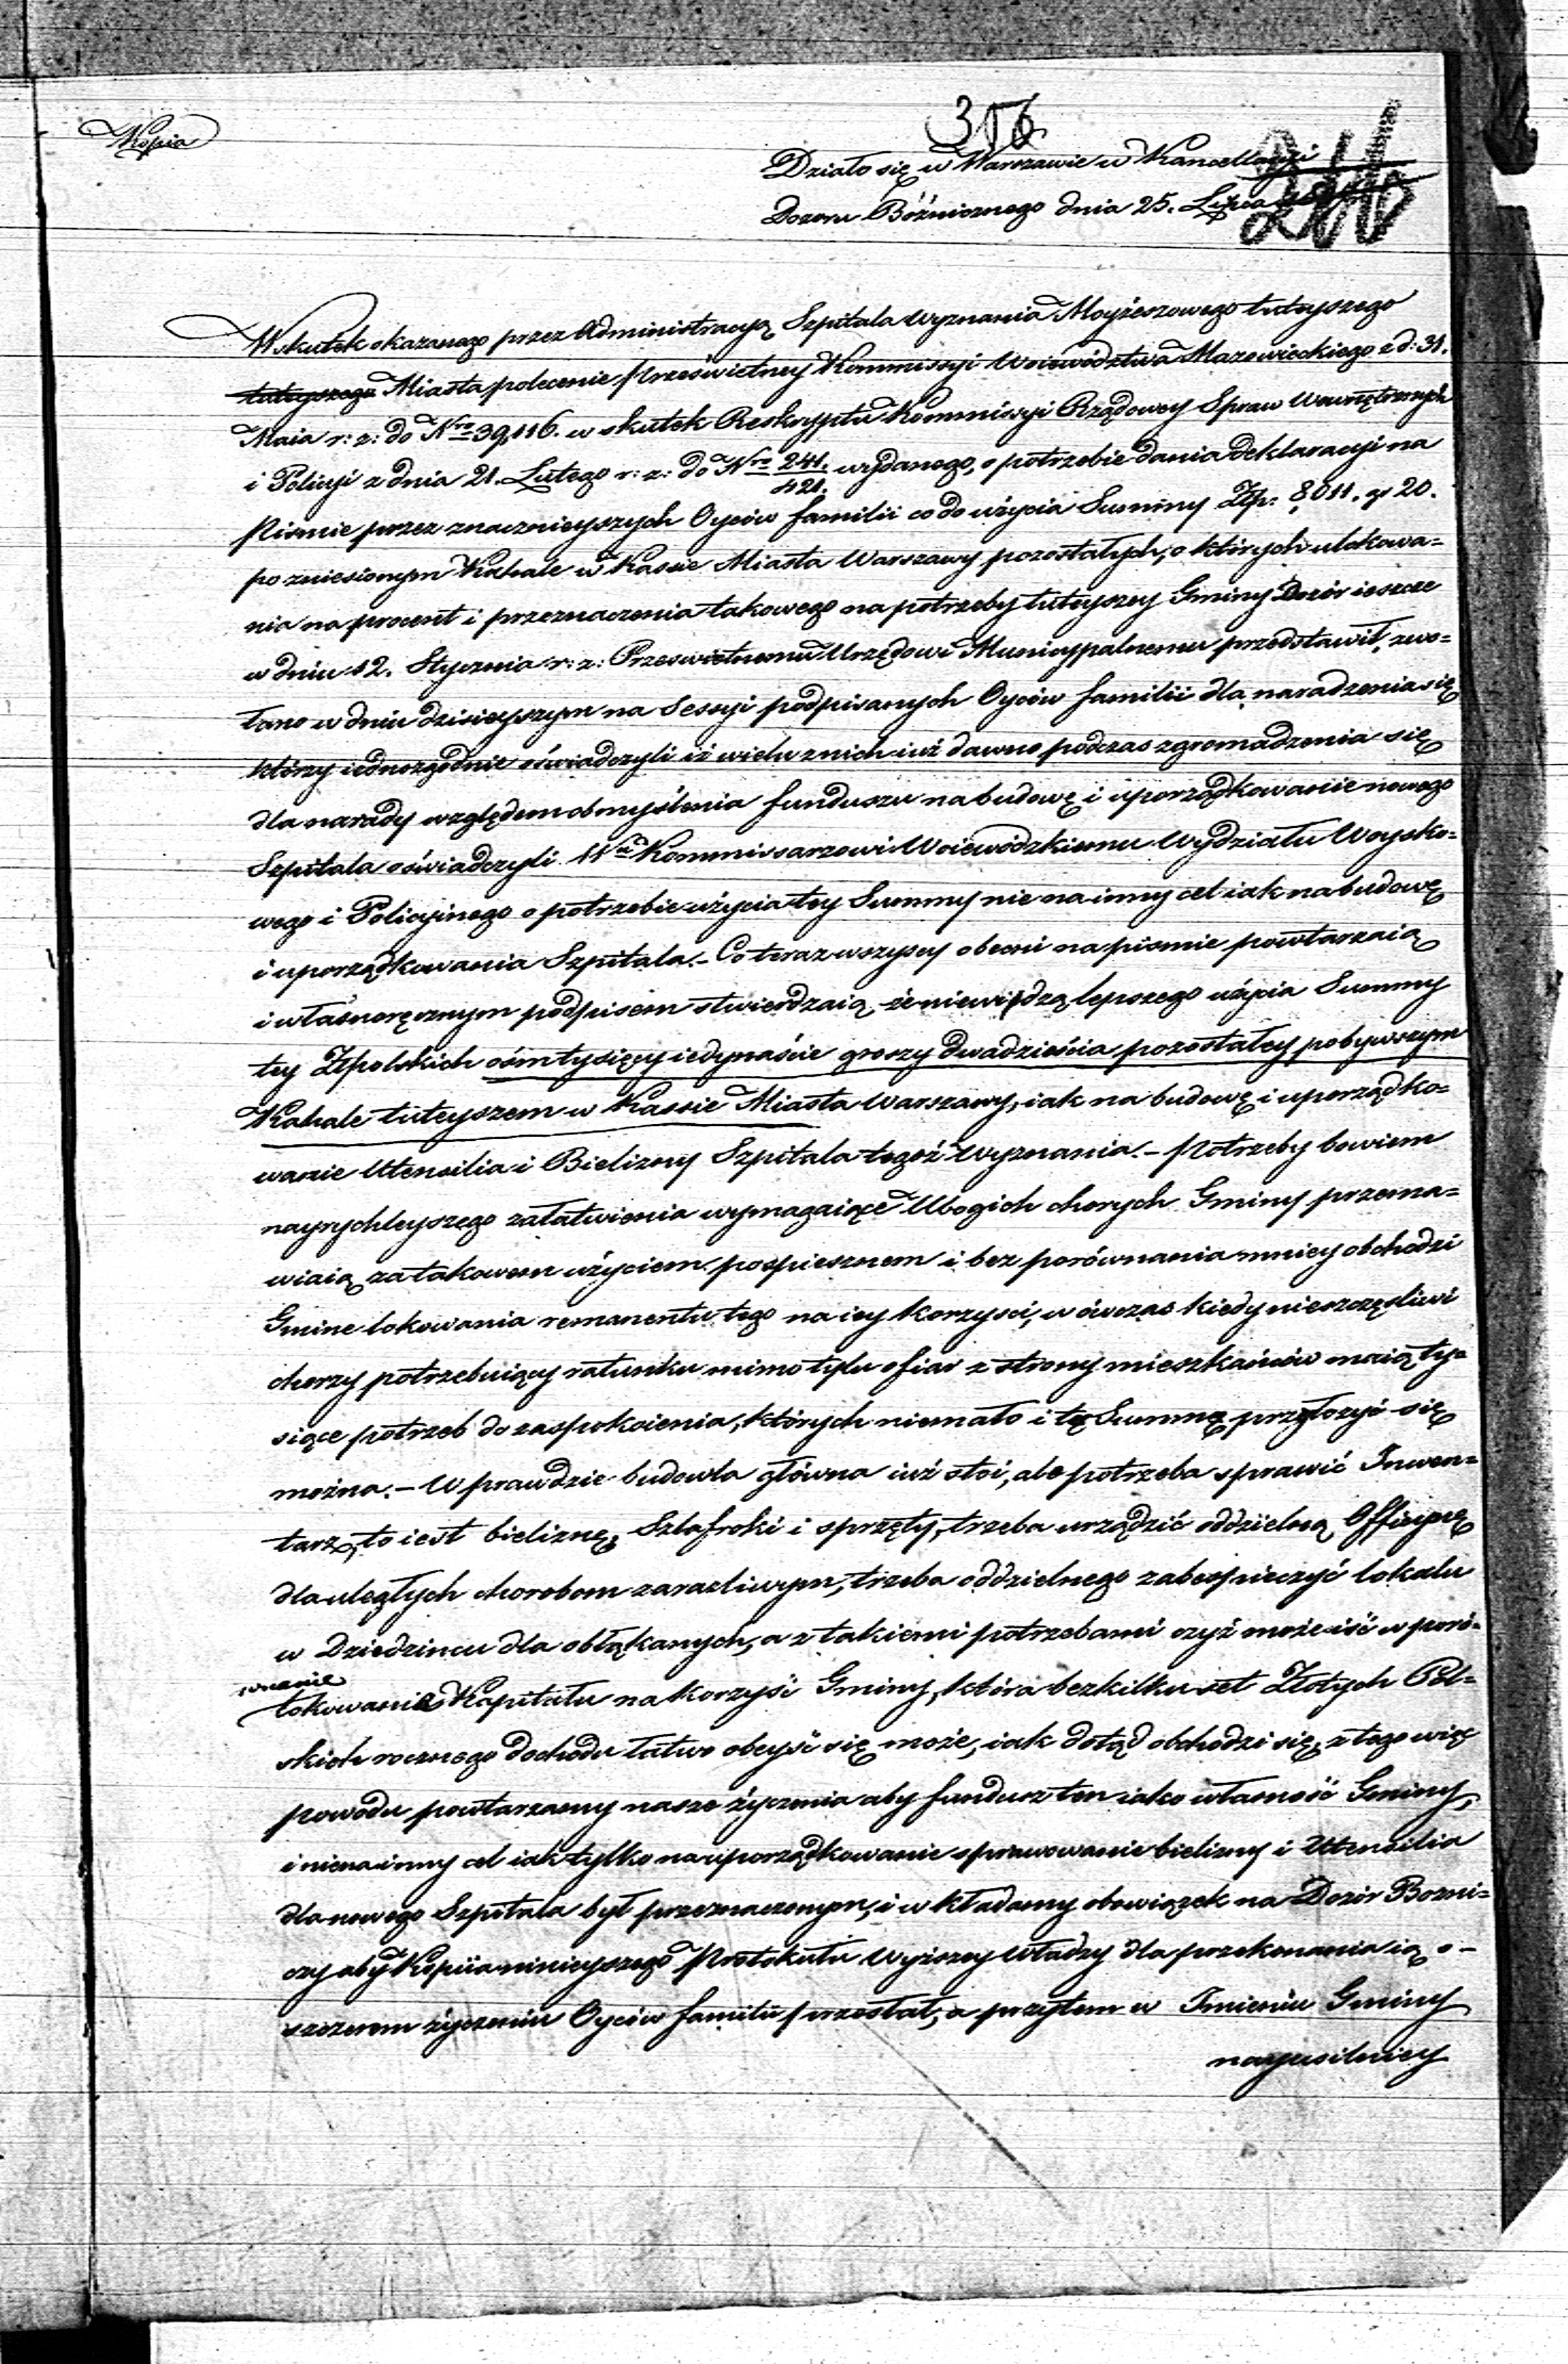 Kopia
316
Działo się w Warszawie w Kancellaryi
Dozoru Bóżnicznego dnia 25. Lipca
W skutek okazanego przez Administracyą Szpitala Wyznania Moyżeszowego tuteyszego
tuteyszego Miasta polecenie Prześwietney Kommissyi Woiewództwa Mazowieckiego z d: 31.
Maia r: z: do Nro 39,116. w skutek Reskryptu Kommissyi Rządowey Spraw Wewnętrznych
i Policyi z dnia 21. Lutego r: z: do Nro 241./421. wydanego, o potrzebie dania deklaracyi na
Piśmie przez znacznieyszych Oyców familii co do użycia Summy Złp: 8,011. gr 20.
po zniesionym Kahale w Kassie Miasta Warszawy pozostałych, o których ulokowa=
nia na procent i przeznaczenia takowego na potrzeby tuteyszey Gminy Dozór ieszcze
w dniu 12. Stycznia r: z: Prześwietnemu Urzędowi Municypalnemu przedstawił, zwo=
łano w dniu dzisieyszym na Sessyi podpisanych Oyców familii dla naradzenia się
którzy iednozgodnie oświadczyli iż wielu z nich iuż dawno podczas zgromadzenia się
dla narady względem obmyślenia funduszu na budowę i uporządkowanie nowego
Szpitala oświadczyli Kommissarzowi Woiewódzkiemu Wydziału Woysko=
wego i Policyinego o potrzebie użycia tey Summy nie na inny cel iak na budowę
i uporządkowania Szpitala.- Co teraz wszyscy obecni na piśmie powtarzaią
i własnoręcznym podpisem stwierdzaią że niewidzą lepszego użycia Summy
tey Złpolskich ośm tysięcy iedynaście groszy dwadzieścia pozostałey po bywszym
Kahale tuteyszem w Kassie Miasta Warszawy, iak na budowę i uporządko=
wanie Utensilia i Bielizny Szpitala tegoż Wyznania.- Potrzeby bowiem
nayrychleyszego załatwienia wymagaiące Ubogich chorych Gminy przema=
wiaią za takowem użyciem pospiesznem i bez porównania mniey obchodzi
Gmine lokowania remanentu tego na iey korzyści, w ówczas kiedy nieszczęśliwi
chorzy potrzebuiący ratunku mimo tylu ofiar z strony mieszkańców maią ty=
siące potrzeb do zaspokoienia, których niemało i tę Summę przyłożyć się
można.- W prawdzie budowla główna iuż stoi, ale potrzeba sprawić Inwen=
tarz, to iest bieliznę, Szlafroki i sprzęty, trzeba urządzić oddzielną Officynę
dla uległych chorobom zaraźliwym, trzeba oddzielnego zabespieczyć lokalu
w Dziedzincu dla obłąkanych, a z takiemi potrzebami czyż może iść w poró=
wnanie
lokowanie Kapitału na korzyść Gminy, która bez kilku set Złotych Pol=
skich rocznego dochodu łatwo obeyść się może, iak dotąd obchodzi się, z tego więc
powodu powtarzamy nasze życzenia aby fundusz ten iako własność Gminy,
i niena inny cel iak tylko na uporządkowanie sprawowanie bielizny i Utensilia
dla nowego Szpitala był przeznaczonym, i w kładamy obowiązek na Dozór Bozni=
czy aby Kopiia ninieyszego Protokułu Wyższey Władzy dla przekonania ią o-
szczerem życzeniu Oyców familii przesłał, a przytem w Imieniu Gminy
nayusilniey